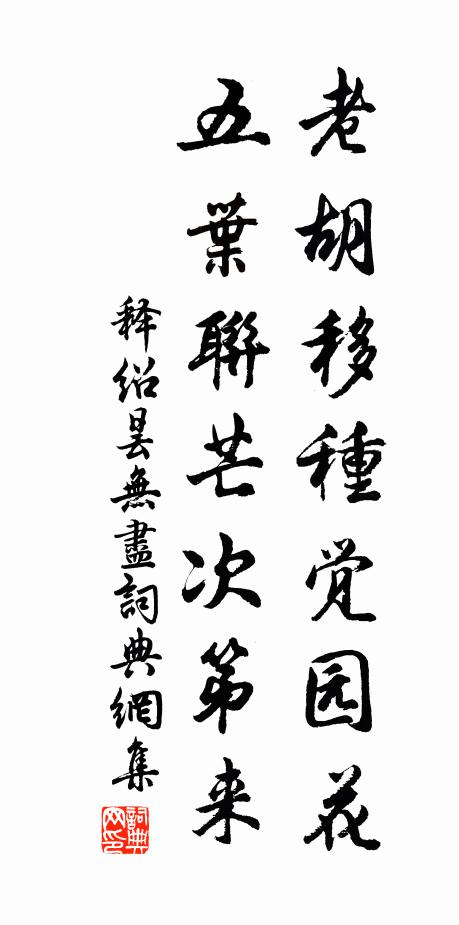 老胡移種觉园花
五葉聯芒次第来
释绍昙無盡詞典網集
詞典网印